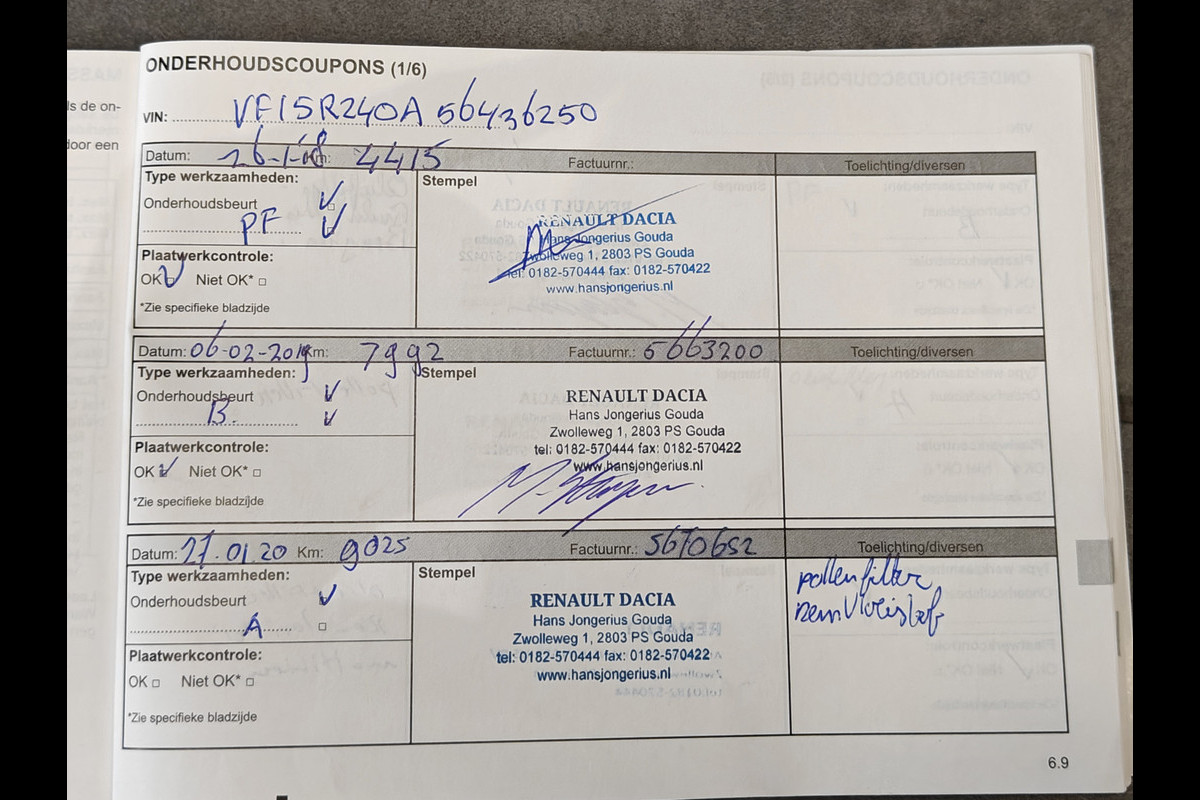 ls de on-
door een
ONDERHOUDSCOUPONS (1/6)
VIN: VF15R240A 56436250
Datum: 26-1-18 Km: 4415 Factuurnr.: Toelichting/diversen
Type werkzaamheden: Stempel
Onderhoudsbeurt
PF
Plaatwerkcontrole:
OK Niet OK*
*Zie specifieke bladzijde
RENAULT DACIA
Hans Jongerius Gouda
Zwolleweg 1, 2803 PS Gouda
tel: 0182-570444 fax: 0182-570422
www.hansjongerius.nl
Datum: 06-02-2019 Km: 7992 Factuurnr.: 5663200 Toelichting/diversen
Type werkzaamheden: Stempel
Onderhoudsbeurt
B.
Plaatwerkcontrole:
OK Niet OK*
*Zie specifieke bladzijde
RENAULT DACIA
Hans Jongerius Gouda
Zwolleweg 1, 2803 PS Gouda
tel: 0182-570444 fax: 0182-570422
www.hansjongerius.nl
Datum: 27.01.20 Km: 9025 Factuurnr.: 5670652 Toelichting/diversen
Type werkzaamheden: Stempel
Onderhoudsbeurt
A
Plaatwerkcontrole:
OK Niet OK*
*Zie specifieke bladzijde
RENAULT DACIA
Hans Jongerius Gouda
Zwolleweg 1, 2803 PS Gouda
tel: 0182-570444 fax: 0182-570422
www.hansjongerius.nl
pollenfilter
remvloeistof
6.9